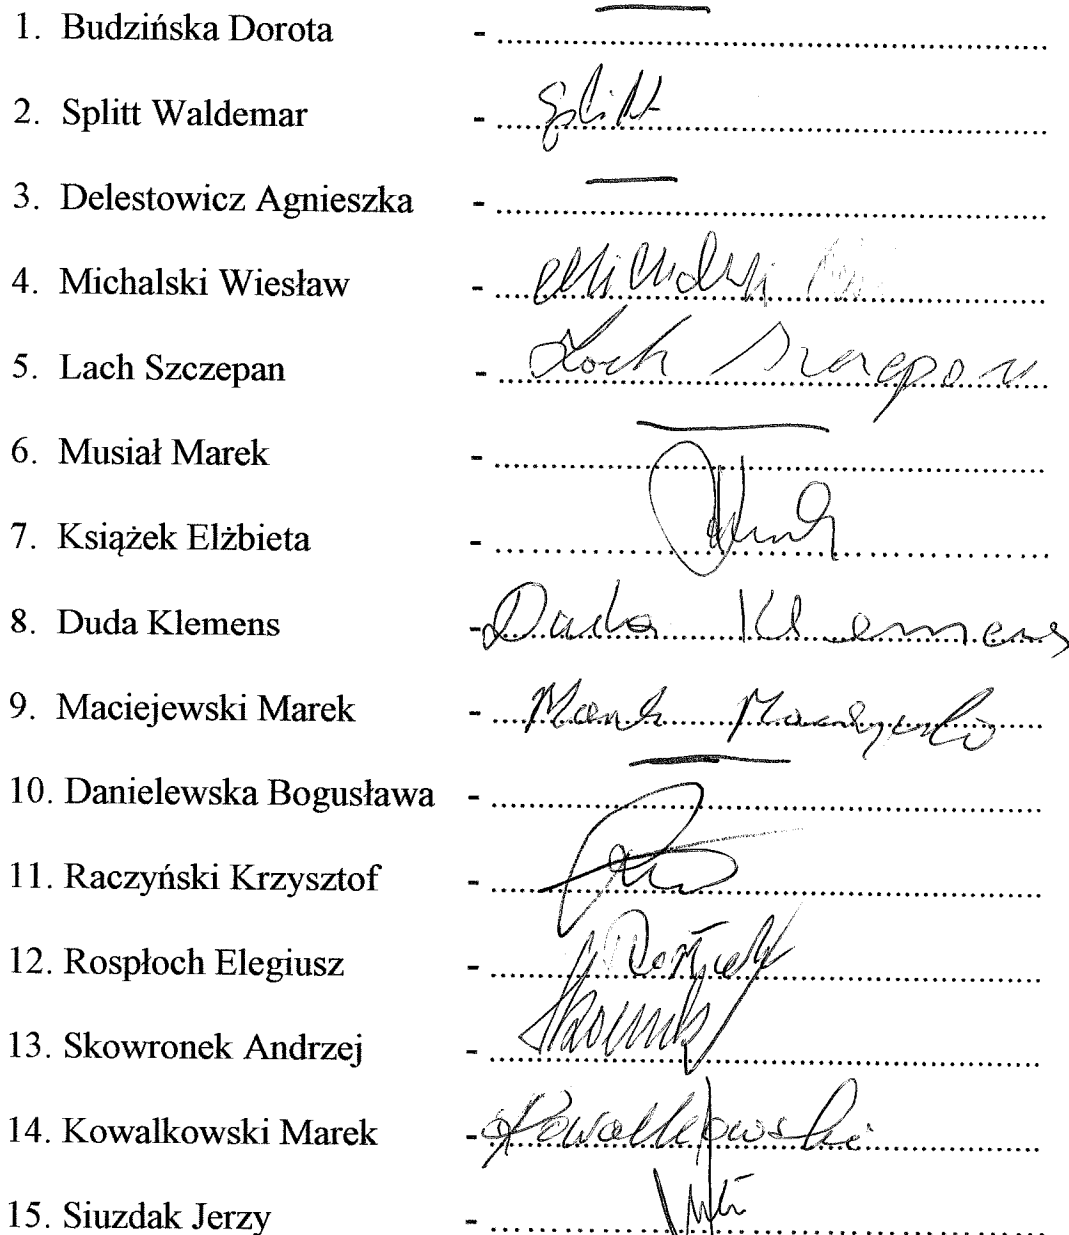 1. Budzińska Dorota - ........................
2. Splitt Waldemar - ........ Splitt ........
3. Delestowicz Agnieszka - ........................
4. Michalski Wiesław - ........ Michalski ........
5. Lach Szczepan - ........ Lach Szczepan ........
6. Musiał Marek - ........................
7. Książek Elżbieta - ........................
8. Duda Klemens - ........ Duda Klemens ........
9. Maciejewski Marek - ........ Marek Maciejewski ........
10. Danielewska Bogusława - ........................
11. Raczyński Krzysztof - ........................
12. Rospłoch Elegiusz - ........................
13. Skowronek Andrzej - ........................
14. Kowalkowski Marek - ........ Kowalkowski ........
15. Siuzdak Jerzy - ........................